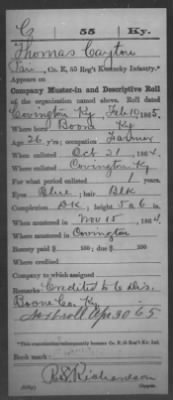 C 55 Ky.
Thomas Cayton
Co. E, 55 Reg't Kentucky Infantry.*
Appears on
Company Muster-in and Descriptive Roll
of the organization named above. Roll dated
Covington Ky Feb 10, 1865.
Where born Boone Ky
Age 26 y'rs; occupation Farmer
When enlisted Oct 21, 1864.
Where enlisted Covington Ky
For what period enlisted 1 years.
Eyes Blue; hair Blk
Complexion Dk; height 5 ft. 6 in.
When mustered in Nov 15, 1864.
Where mustered in Covington
Bounty paid $ 100; due $ 100
Where credited
Company to which assigned
Remarks: Credited to 6 Dis.
Boone Co. Ky
Apr 30 65
Book mark:
R. S. Richardson
Copyist.